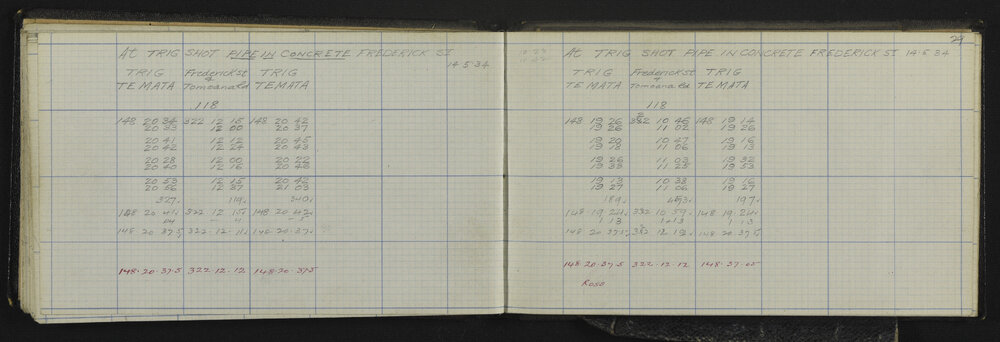 At TRIG SHOT PIPE IN CONCRETE FREDERICK ST
14.5.34
TRIG Frederick St TRIG
TE MATA & Tomoana Rd TE MATA
118
148 20 34 322 12 15 148 20 42
20 33 12 00 20 37
20 41 12 12 20 45
20 42 12 24 20 43
20 28 12 00 20 22
20 40 12 16 20 48
20 53 12 15 20 42
20 56 12 37 21 03
327. 119.
148 20 41. 322 12 15. 148 20 42.
148 20 37.5 322.12.11. 148.20.37.
148.20.37.5 322.12.12 148.20.37.5
29
At TRIG SHOT PIPE IN CONCRETE FREDERICK ST 14.5.34
TRIG Frederick St TRIG
TE MATA & Tomoana Rd TE MATA
118
148 19 26 332 10 46 148 19 14
19 26 11 02 19 26
19 20 10 47 19 16
19 18 11 06 19 13
19 26 11 03 19 32
19 33 11 22 19 53
19 13 10 38 19 16
19 27 11 06 19 27
189. 197.
148.19.24. 332 10 59. 148.19.24.
1 13 1.13 1 13
148 20 37.5 332 12 12. 148 20 37.
148.20.37.5 322.12.12 148.37.05
Ross